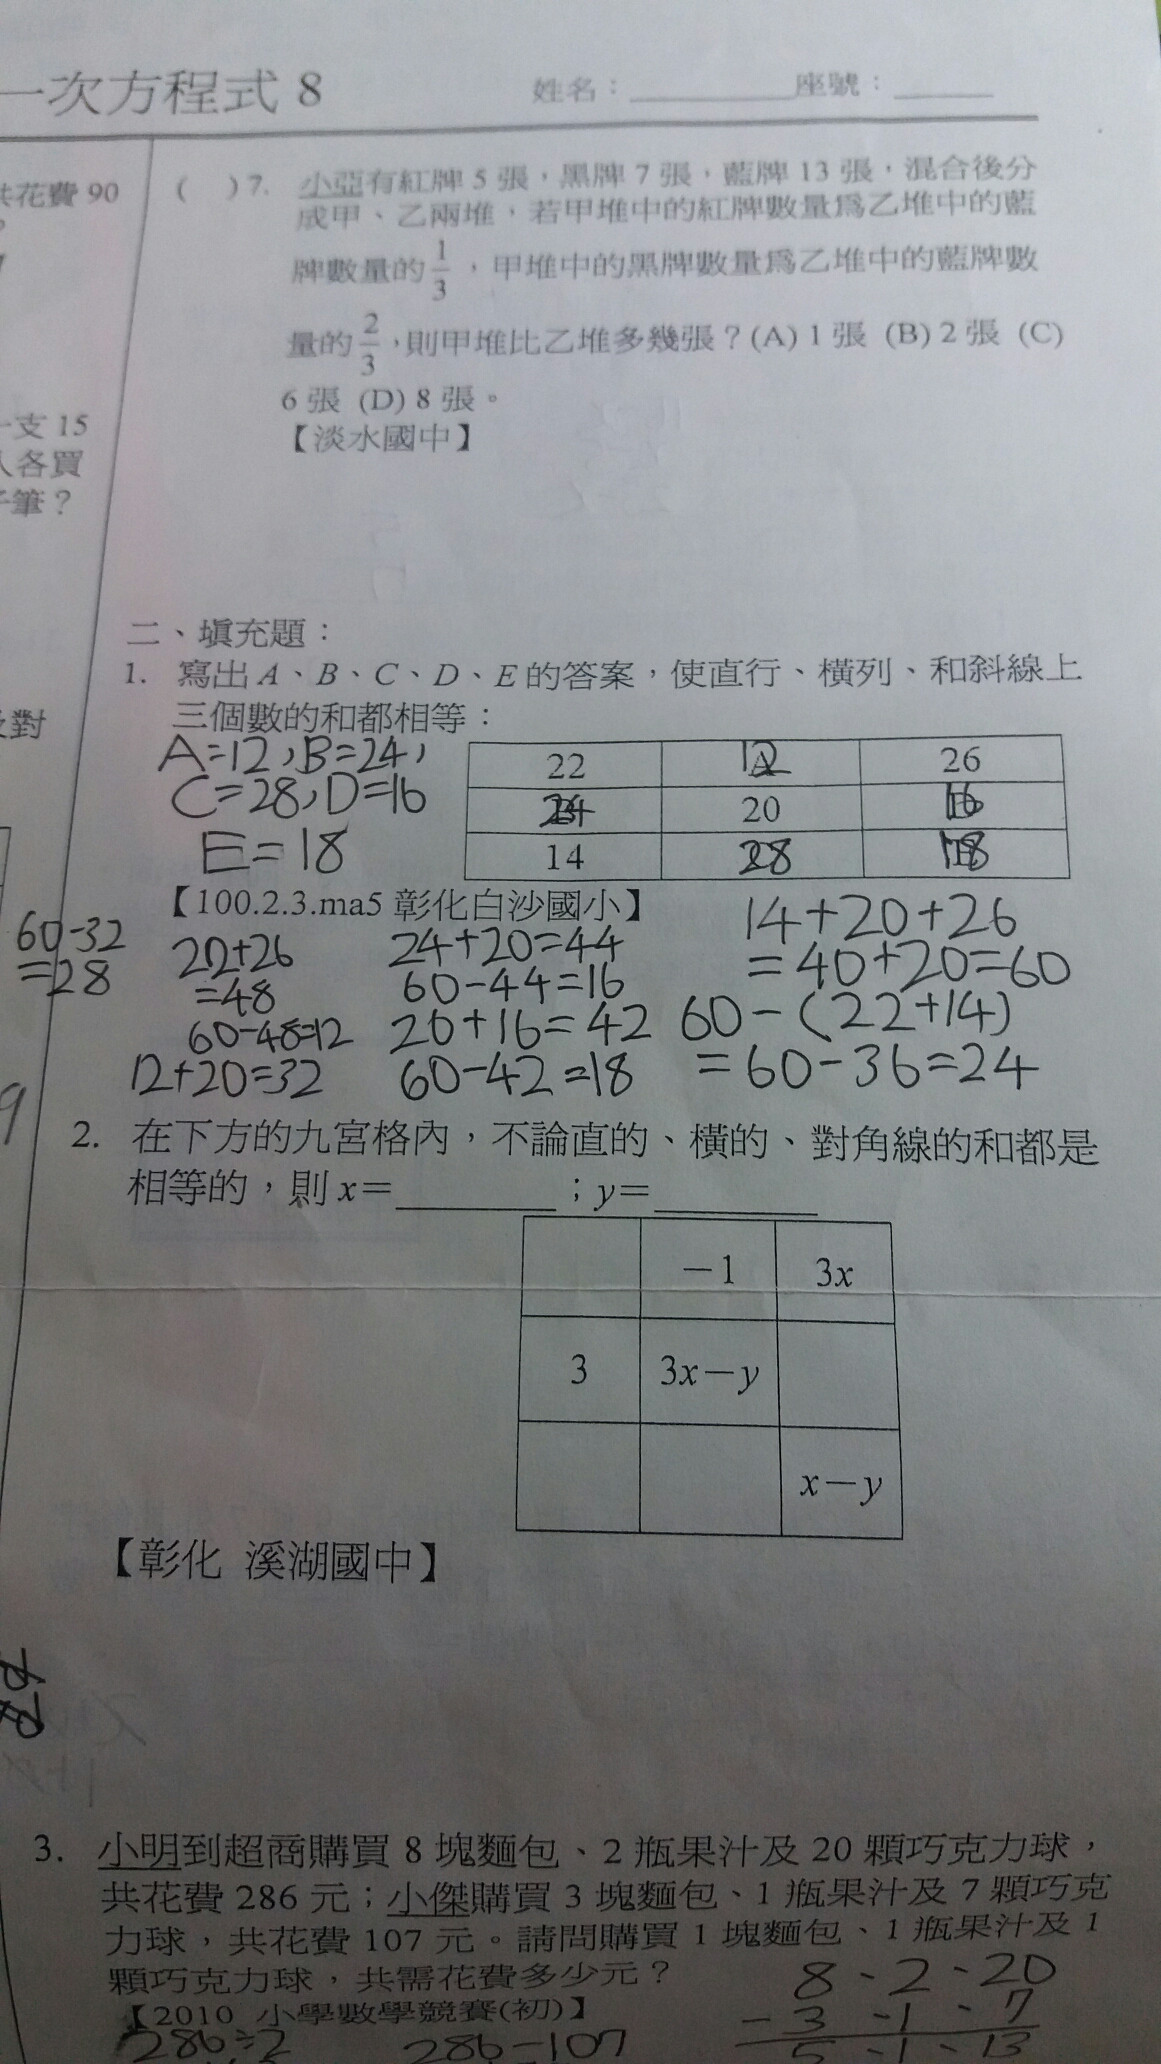 一次方程式 8
姓名：
座號：
共花費 90
一支 15
人各買
子筆？
反對
( ) 7. 小亞有紅牌 5 張，黑牌 7 張，藍牌 13 張，混合後分
成甲、乙兩堆，若甲堆中的紅牌數量為乙堆中的藍
牌數量的 1/3 ，甲堆中的黑牌數量為乙堆中的藍牌數
量的 2/3 ，則甲堆比乙堆多幾張？(A) 1 張 (B) 2 張 (C)
6 張 (D) 8 張。
【淡水國中】
二、填充題：
1. 寫出 A、B、C、D、E 的答案，使直行、橫列、和斜線上
三個數的和都相等：
A=12，B=24，
C=28，D=16
E=18
22 12 26
24 20 16
14 28 18
【100.2.3.ma5 彰化白沙國小】
60-32
=28
22+26
=48
60-48=12
12+20=32
24+20=44
60-44=16
26+16=42
60-42=18
14+20+26
=40+20=60
60-(22+14)
=60-36=24
2. 在下方的九宮格內，不論直的、橫的、對角線的和都是
相等的，則 x= ；y=
-1 3x
3 3x-y
x-y
【彰化 溪湖國中】
3. 小明到超商購買 8 塊麵包、2 瓶果汁及 20 顆巧克力球，
共花費 286 元；小傑購買 3 塊麵包、1 瓶果汁及 7 顆巧克
力球，共花費 107 元。請問購買 1 塊麵包、1 瓶果汁及 1
顆巧克力球，共需花費多少元？
【2010 小學數學競賽(初)】
8、2、20
-3、1、7
5、1、13
286÷2
286-107